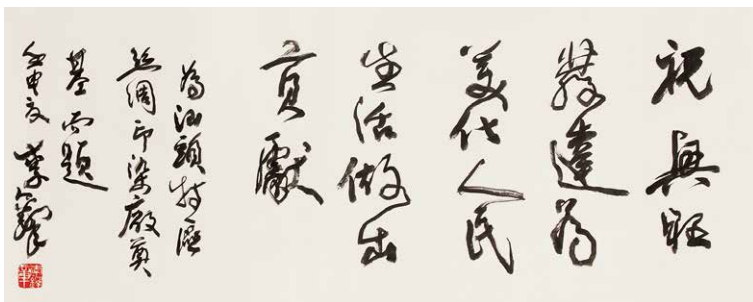 祝興旺
發達為
美化人民
生活做出
貢獻
為汕頭特區
絲綢印染廠奠
基而題
壬申夏 李鐸